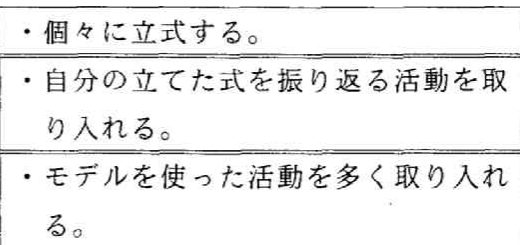 ・個々に立式する。
・自分の立てた式を振り返る活動を取
り入れる。
・モデルを使った活動を多く取り入れ
る。